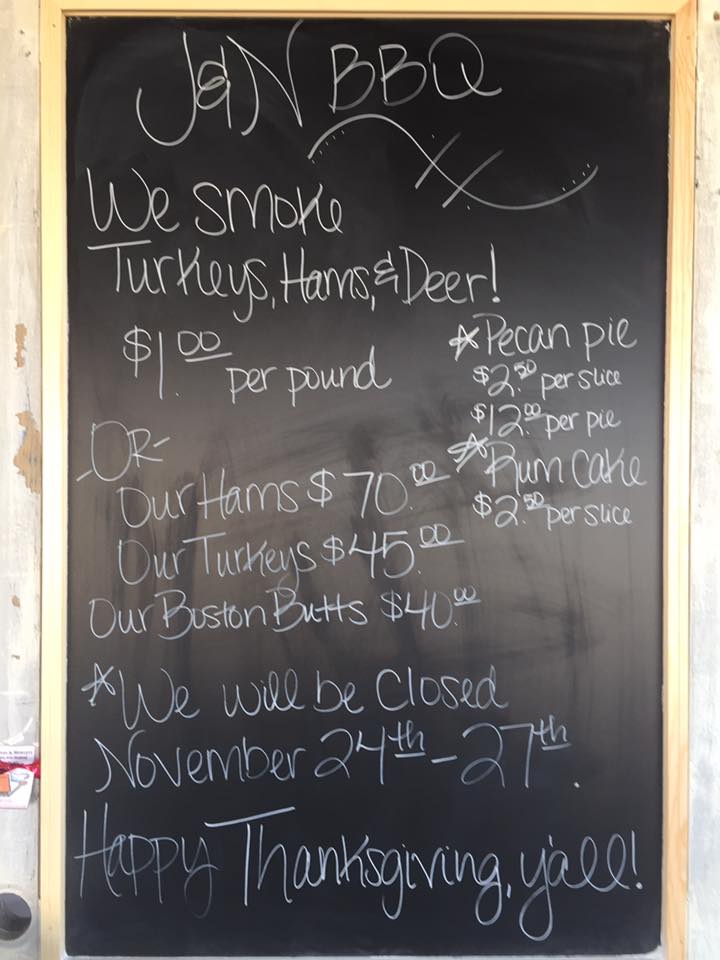 J&N BBQ
We smoke
Turkeys, Hams, & Deer!
$1.00 per pound
*Pecan pie
$2.50 per slice
$12.00 per pie
*Rum cake
$2.50 per slice
-OR-
Our Hams $70.00
Our Turkeys $45.00
Our Boston Butts $40.00
*We will be closed
November 24th - 27th.
Happy Thanksgiving, y'all!